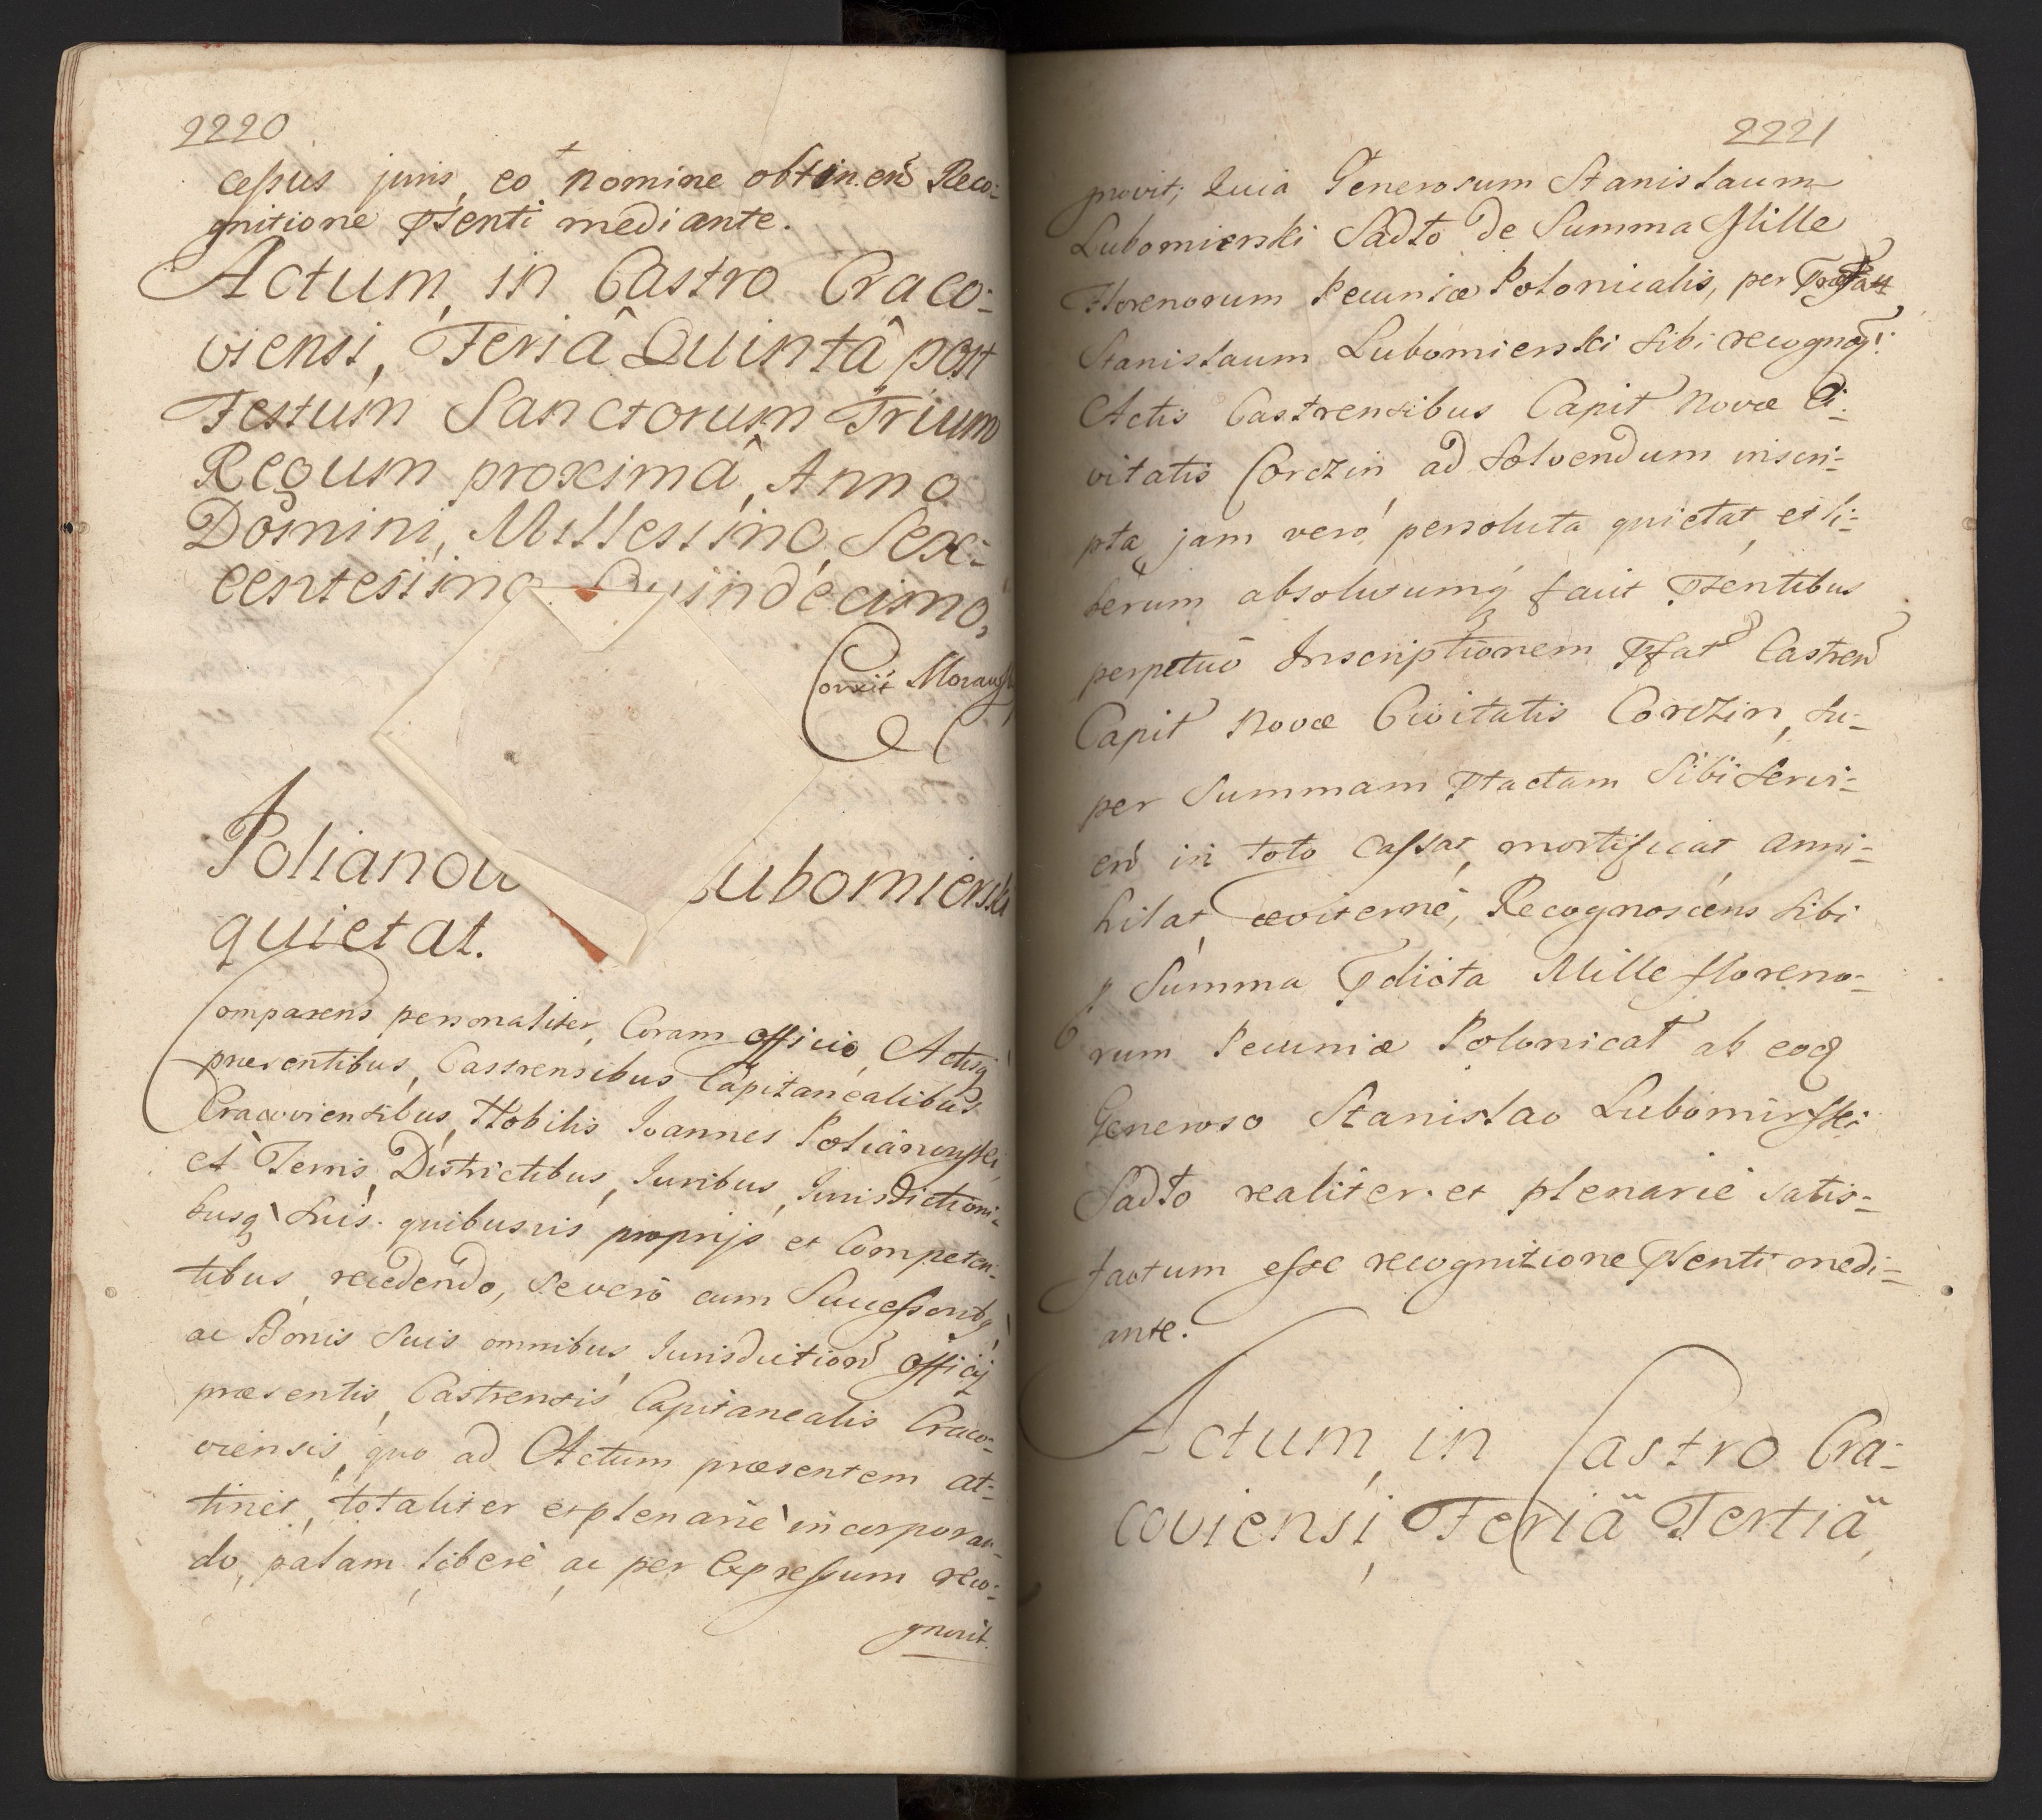 2220
cessus juris, eo nomine obtinen Reco-
gnitione Psenti mediante.
Actum, in Castro Craco-
viensi, Feriâ Quintâ post
Festum Sanctorum Trium
Regum proximâ, Anno
Domini, Millesimo, Sex-
centesimo Quindecimo,
Correxit
Polianow ubomierski
quietat.
Comparens personaliter, Coram officio, Actisq
praesentibus, Castrensibus Capitanealibus
Cracoviensibus, Nobilis Joannes Polianowski,
et Terris, Districtibus, Iuribus, Iurisdictioni-
busq Suis quibusvis proprijs et Competen-
tibus recedendo, se verò cum Successoribq
ac Bonis Suis omnibus, Iurisdiction officij
praesentis, Castrensis Capitanealis Craco-
viensis, quo ad Actum praesentem at-
tinet, totaliter et plenariè incorporan-
do, palam liberè ac per Expressum reco-
gnovit.
2221
gnovit; Quia Generosum Stanislaum
Lubomierski Sadto de Summa Mille
Florenorum Pecuniæ Polonicalis, per
Stanislaum Lubomierski sibi recognoy:
Actis Castrensibus Capit Novæ Ci-
vitatis Corczin ad Solvendum inscri-
pta, jam verò persoluta quietat, et li-
berum absolutumq facit Psentibus
perpetuò Inscriptionem Pfat Castren
Capit Novæ Civitatis Corczin, Su-
per Summam Ptactam Sibi Servi-
en in toto Cassat, mortificat anni-
hilat, æviternè, Recognoscens Sibi
p Summa Pdicta Mille floreno-
rum Pecuniæ Polonical ab eodq
Generoso Stanislao Lubomirski
Sadto realiter et plenariè satis-
factum esse recognitione Psenti medi-
ante.
Actum, in Castro Cra-
coviensi, Feriâ Tertiâ,